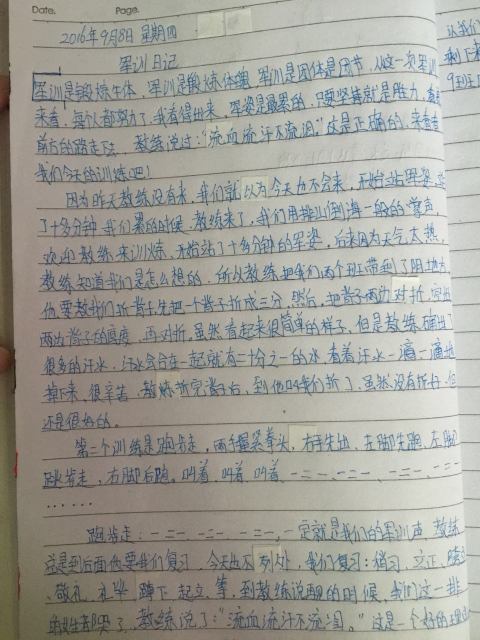 Date. Page.
2016年9月8日 星期四
军训日记
军训是锻炼牛体，军训是锻炼体魄，军训是团体是团节，从这一次军训
来看，每个人都努力了，我看得出来，军姿是最累的，只要坚持就是胜力，看着
前方的路走下去，教练说过："流血流汗不流泪。"这是正确的，来看看
我们今天的训练吧！
因为昨天教练没有来，我们就以为今天也不会来，开始站军姿，站
了十多分钟，我们累的时候，教练来了，我们用排山倒海一般的掌声，
欢迎教练来训练，开始站了十多分钟的军姿，后来因为天气太热，
教练知道我们是怎么想的，所以教练把我们两个班带到了阴地方
他要教我们折背子，先把一个背子折成三分，然后，把背子两边对折，
两边背子的高度，再对折，虽然看起来很简单的样子，但是教练
很多的汗水，汗水会合在一起就有二十分之一的水，看着汗水一滴一滴地
掉下来，很辛苦，教练折完背后，到他叫我们折了，虽然没有折好，但
还是很好的。
第二个训练是跑步走，两手握紧拳头，右手先出，左脚先跑，左脚
跳步走，右脚后跑。叫着，叫着，叫着，
……
跑步走：一二一，一二一，一二一，一定就是我们的军训声，教练
总是到后面他要我们复习，今天也不列处，我们复习：稍习，立正，
敬礼，礼毕，蹲下，起立，等，到教练说
的女生都哭了，教练说了："流血流汗不流泪。"这是一个好的